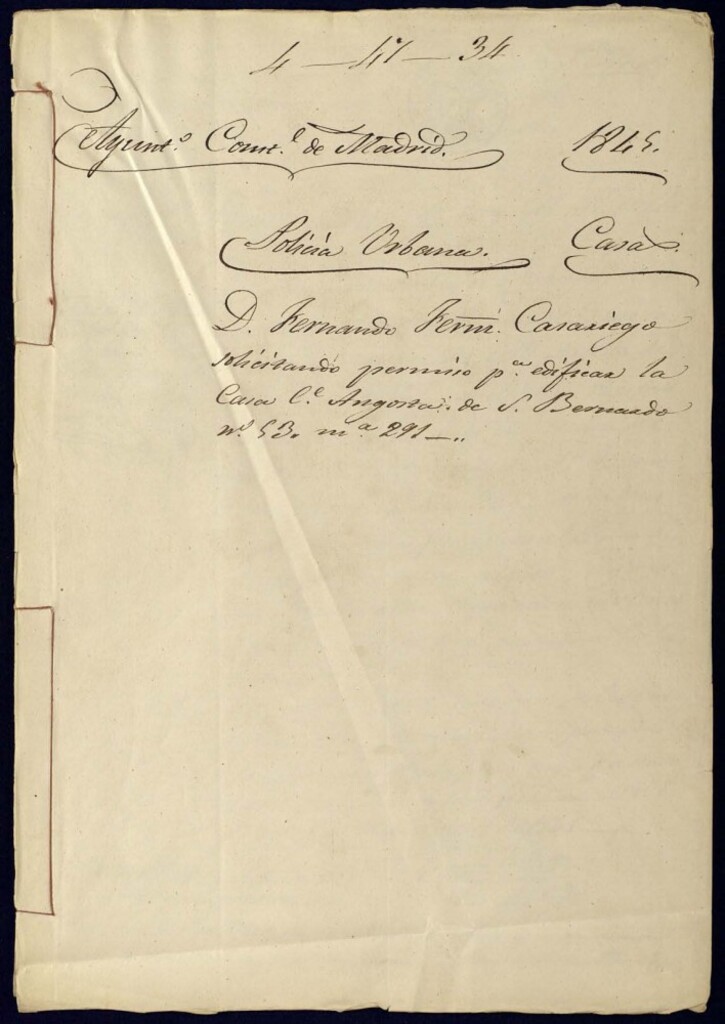 4 — 47 — 34
Ayunt.º Const.l de Madrid. 1845.
Policia Urbana. Casas.
D. Fernando Fern. Casariego
solicitando permiso p.a edificar la
Casa C.e Angosta de S. Bernardo
nº 53. m.a 291 —..